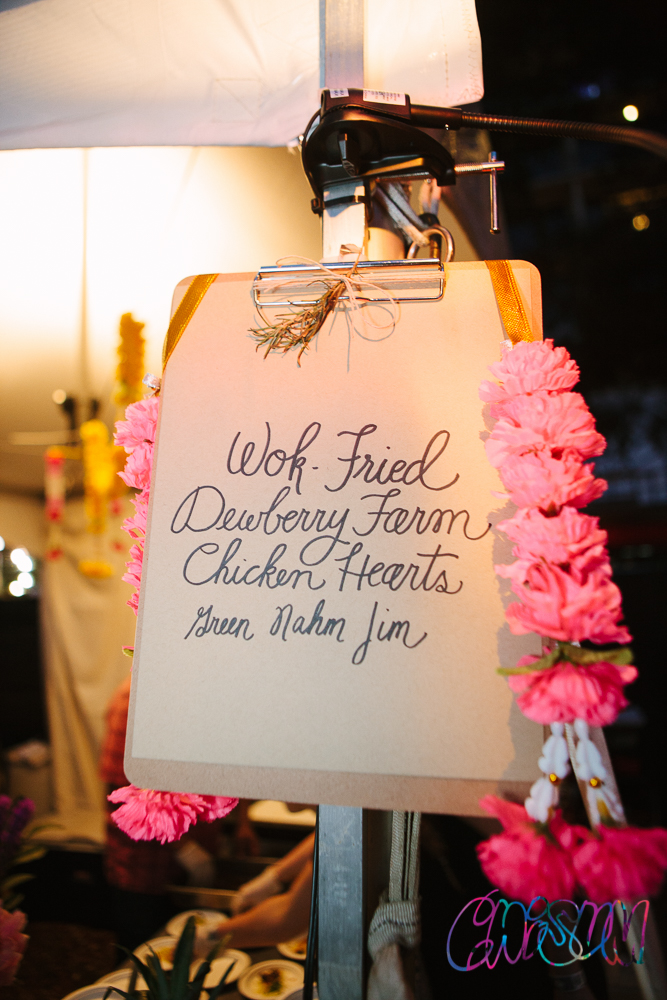 Wok-Fried
Dewberry Farm
Chicken Hearts
Green Nahm Jim